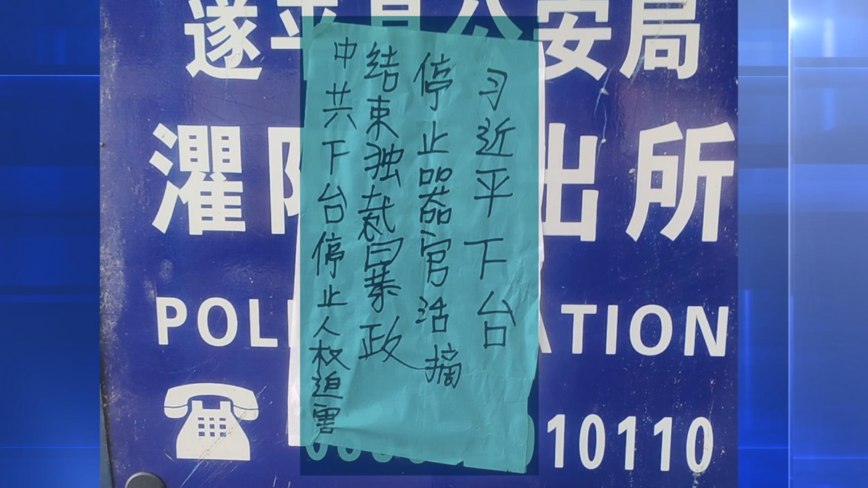 遂平县公安局
灌 出所
POLI ATION
10110
习近平下台
停止器官活摘
结束独裁暴政
中共下台停止人权迫害